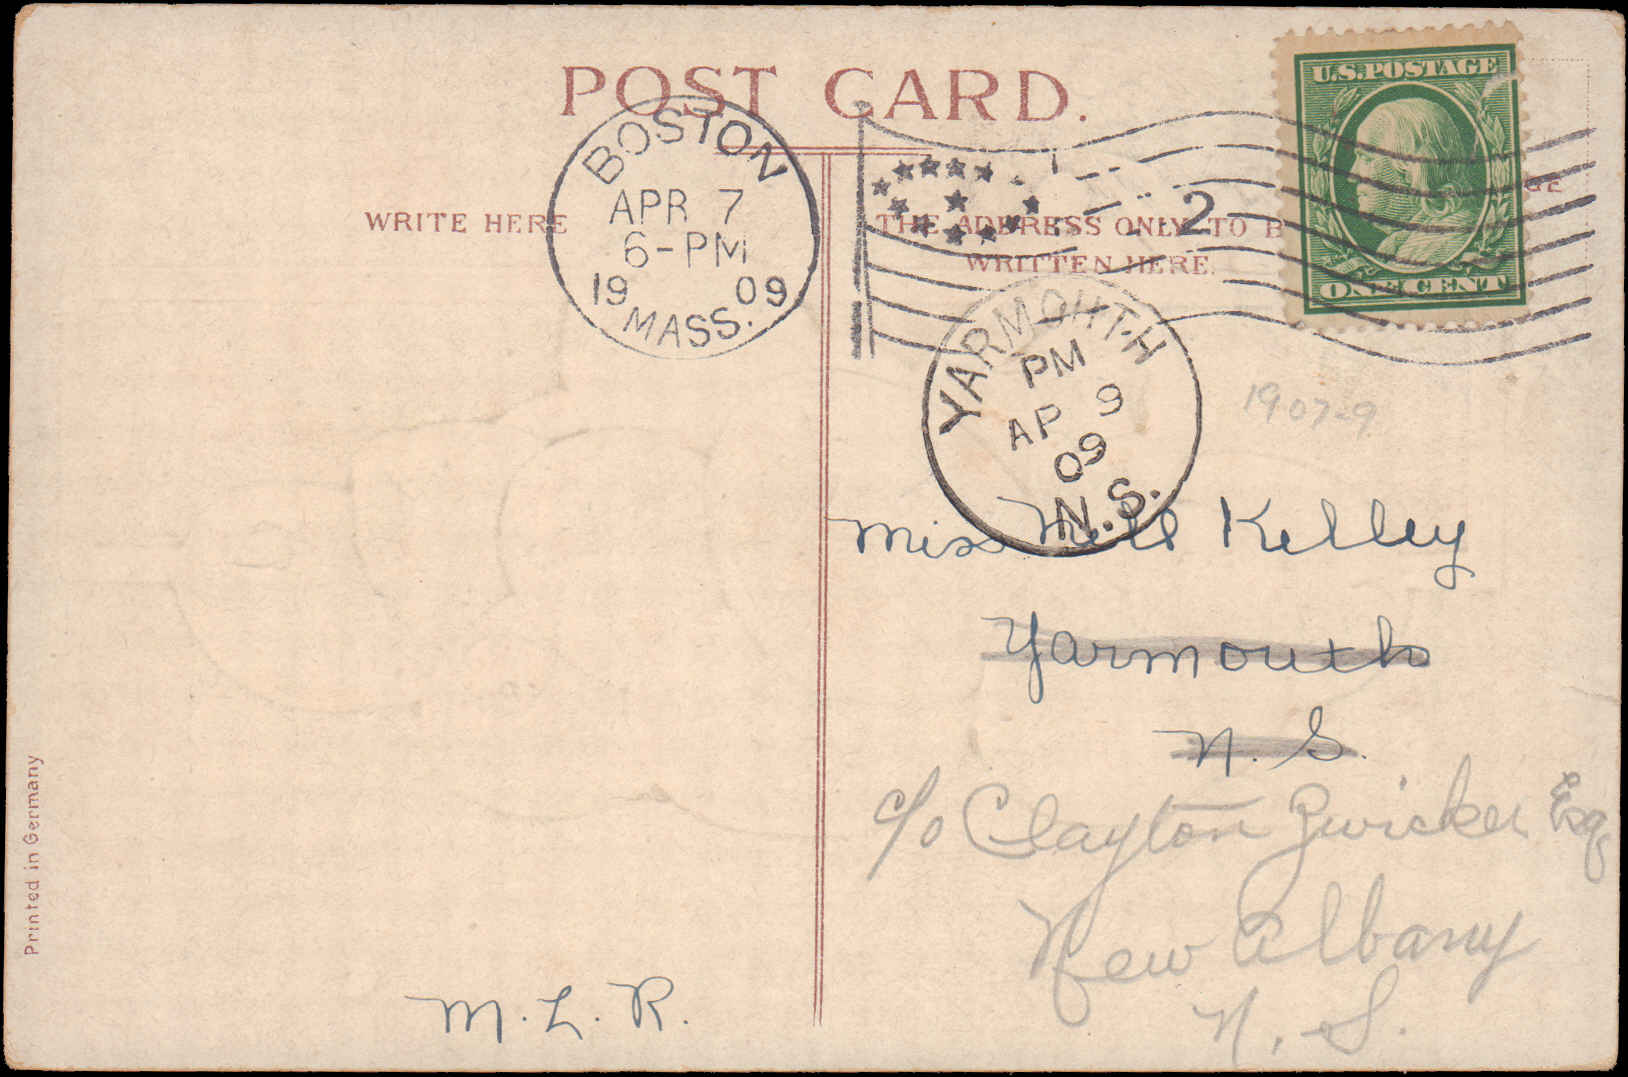 POST CARD.
U.S. POSTAGE
ONE CENT
BOSTON
APR 7
6-PM
1909
MASS.
2
WRITE HERE
THE ADDRESS ONLY TO B
GE
WRITTEN HERE.
YARMOUTH
PM
AP 9
09
N.S.
1907-9
Miss Nell Kelley
Yarmouth
N. S.
c/o Clayton Zwicker Esq
New Albany
N. S.
M. L. R.
Printed in Germany